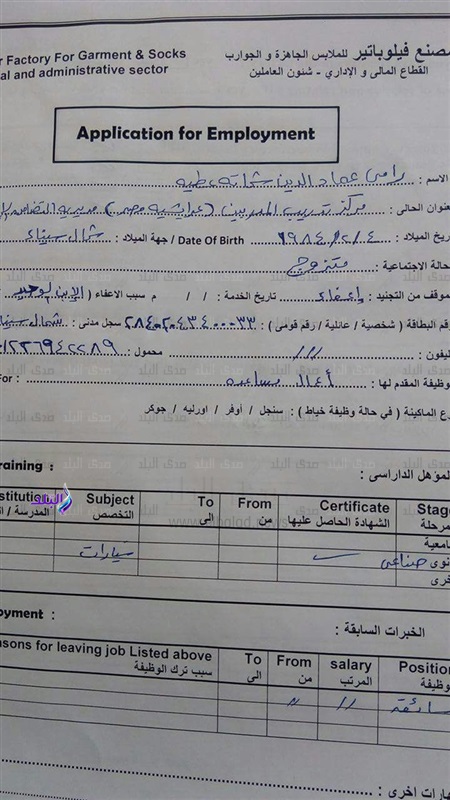 r Factory For Garment & Socks
al and administrative sector
مصنع فيلوباتير للملابس الجاهزة و الجوارب
القطاع المالى و الإداري - شئون العاملين
Application for Employment
الاسم : رامى عماد الدين شحاته عطيه
عنوان الحالى : مركز تدريب المدربين (
ريخ الميلاد : ٤ / ٢ / ١٩٨٤ Date Of Birth / جهة الميلاد : شمال سيناء
حالة الاجتماعية : متزوج
موقف من التجنيد : إعفاء تاريخ الخدمة : / / م سبب الاعفاء (
رقم البطاقة ( شخصية / عائلية / رقم قومى ) : ٢٨٤٠٢٠٤٣٤٠٠٠٣٣ سجل مدنى : شمال سيناء
ليفون : // محمول : ٠١٢٢٦٩٤٢٢٨٩
وظيفة المقدم لها : أعمال مساعده : For
وع الماكينة ( في حالة وظيفة خياط ) : سنجل / أوفر / اورليه / جوكر
raining :
لمؤهل الدراسى :
Stage
مرحلة
Certificate
الشهادة الحاصل عليها
From
من
To
الى
Subject
التخصص
stitution
المدرسة / ا
صدى البلد
جامعية
نوى صناعى
سيارات
خرى
oyment :
الخبرات السابقة :
Position
وظيفة
salary
المرتب
From
من
To
الى
asons for leaving job Listed above
سبب ترك الوظيفة
// //
هارات اخرى :